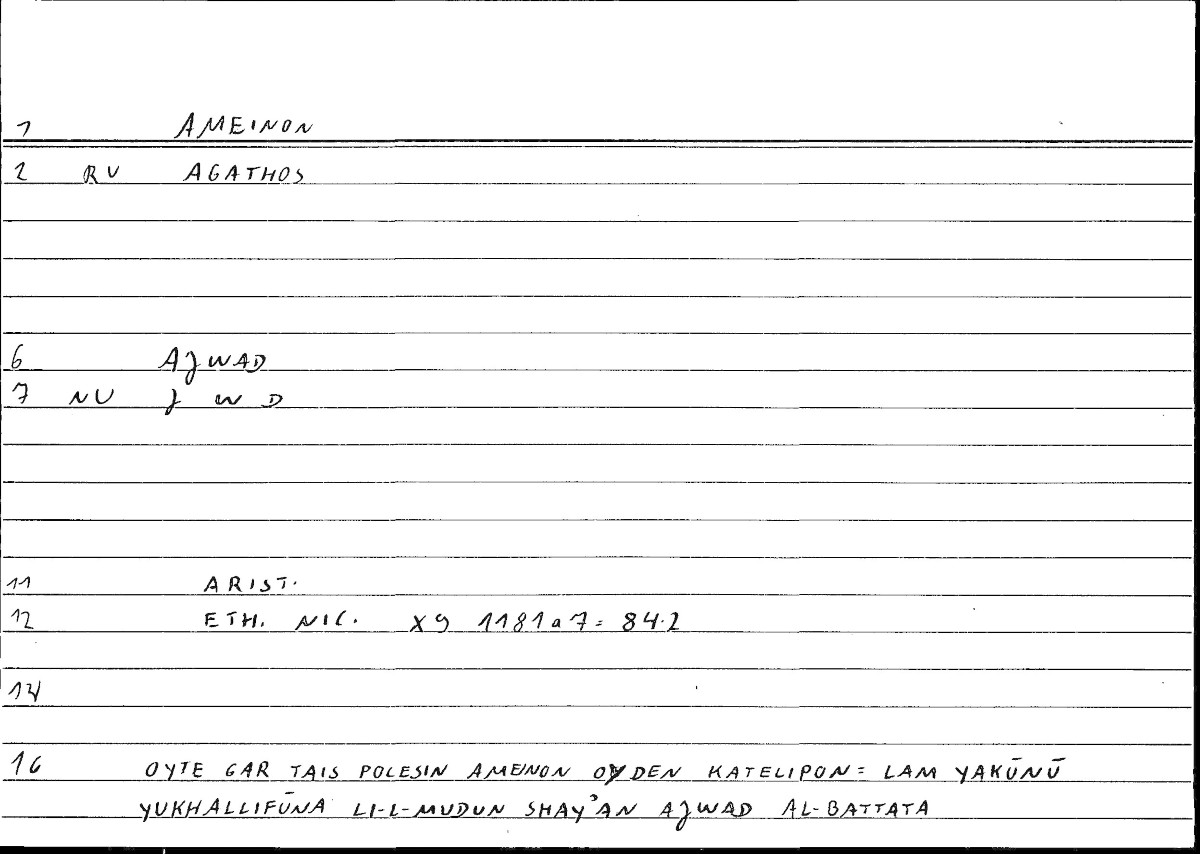 1 AMEINON
2 RU AGATHOS
6 AJWAD
7 NU J W D
11 ARIST.
12 ETH. NIC. X9 1181a7 = 84.2
14
16 OYTE GAR TAIS POLESIN AMEINON OYDEN KATELIPON = LAM YAKŪNŪ
YUKHALLIFŪNA LI-L-MUDUN SHAYʾAN AJWAD AL-BATTATA